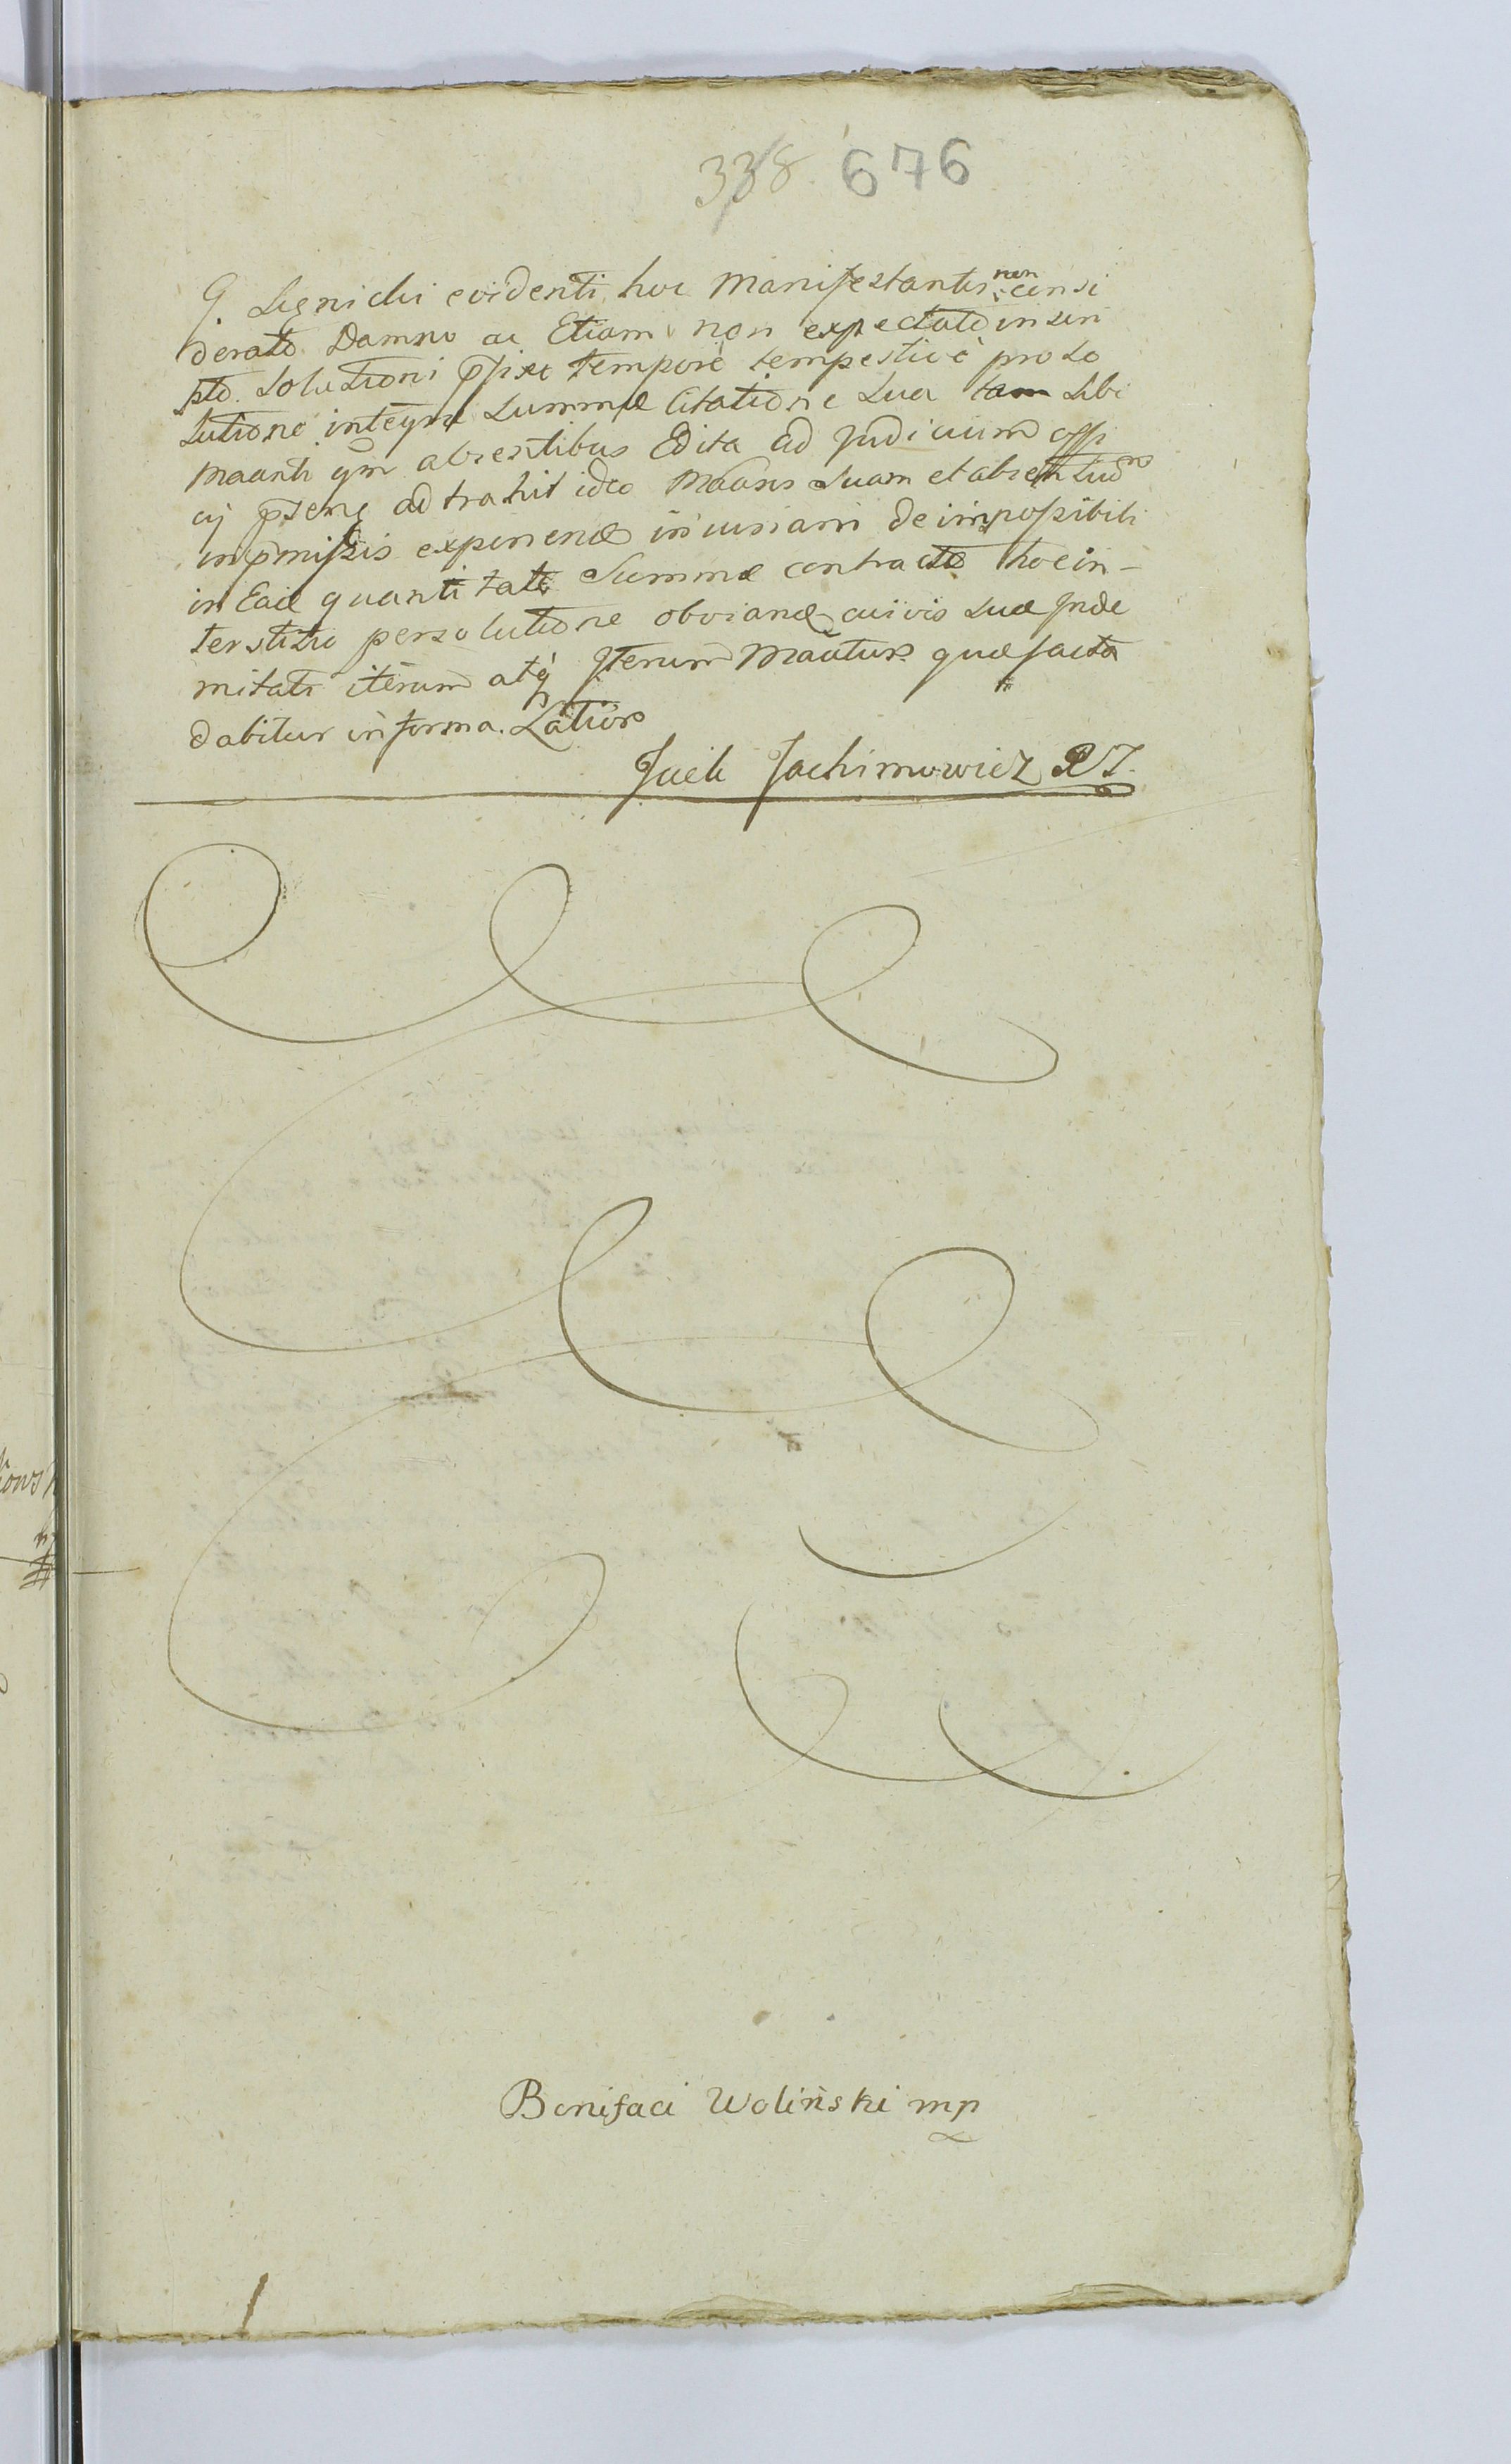 338 676
G. Lignicki evidenti hoc Manifestantis non consi
derato Damno ac Etiam non expectato in scri
pto. Solutioni pfixe tempore tempestive pro so
lutione integræ Summæ Citatione Sua tam sibi
Maanti qm absentibus Edita ad Judicium offi
cij psens adtrahit ideo Maans Suam et absentium
in pmissis experiend iniuriam de impossibili
in Ead quantitate Summæ contractæ hoc in-
terstitio persolutione obviand cuivis Suæ Inde
mitati iterum atq Iterum Maatur quæ facta
dabitur in forma Latiori
Jachimowicz
Bonifaci Woliński mp